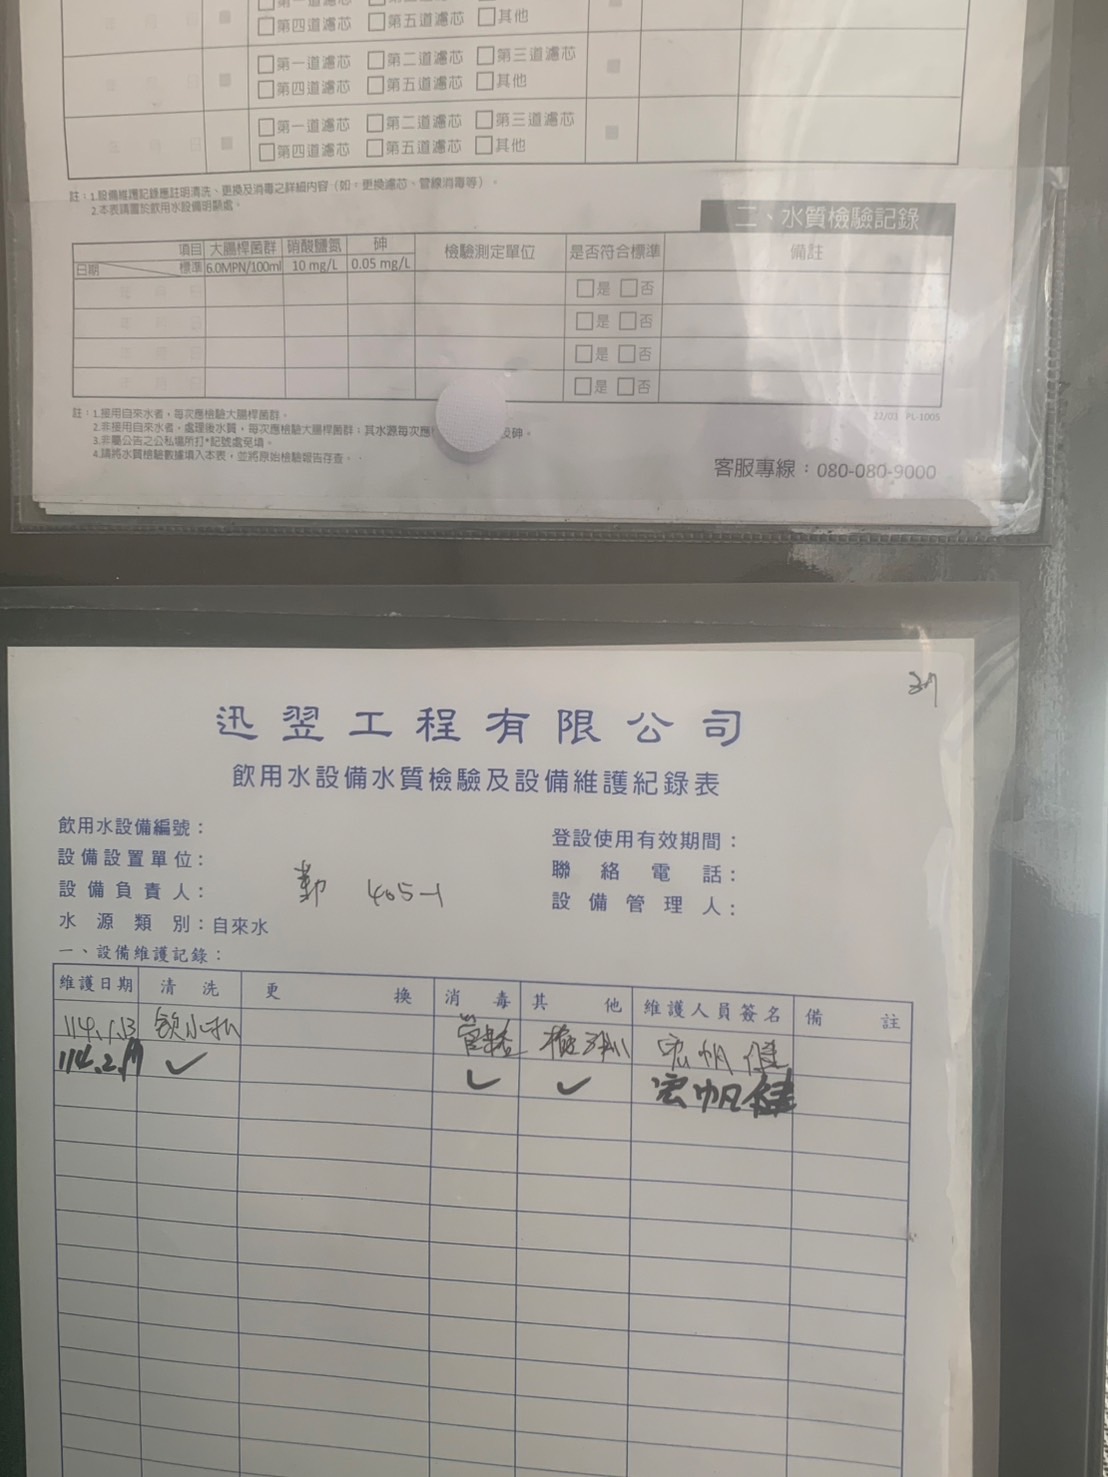 □第四道濾芯 □第五道濾芯 □其他
□第一道濾芯 □第二道濾芯 □第三道濾芯
年 月 日
□第四道濾芯 □第五道濾芯 □其他
□第一道濾芯 □第二道濾芯 □第三道濾芯
年 月 日
□第四道濾芯 □第五道濾芯 □其他
註：1.設備維護記錄應註明清洗、更換及消毒之詳細內容（如：更換濾芯、管線消毒等）。
2.本表請置於飲用水設備明顯處。
二、水質檢驗記錄
項目 大腸桿菌群 硝酸鹽氮 砷 檢驗測定單位 是否符合標準 備註
日期 標準 6.0MPN/100ml 10 mg/L 0.05 mg/L
年 月 日 □是 □否
年 月 日 □是 □否
年 月 日 □是 □否
年 月 日 □是 □否
註：1.接用自來水者，每次應檢驗大腸桿菌群。
2.非接用自來水者，處理後水質，每次應檢驗大腸桿菌群；其水源每次應 砷。
3.非屬公告之公私場所打*記號處免填。
4.請將水質檢驗數據填入本表，並將原始檢驗報告存查。
22/03 PL-1005
客服專線：080-080-9000
迅翌工程有限公司
飲用水設備水質檢驗及設備維護紀錄表
飲用水設備編號：
登設使用有效期間：
設備設置單位：
聯絡電話：
設備負責人： 勤 405-1
設備管理人：
水源類別：自來水
一、設備維護記錄：
維護日期 清洗 更換 消毒 其他 維護人員簽名 備註
114.1.13 飲水機 管路 宏帆 健
114.2. ✓ ✓ ✓ 宏帆 健